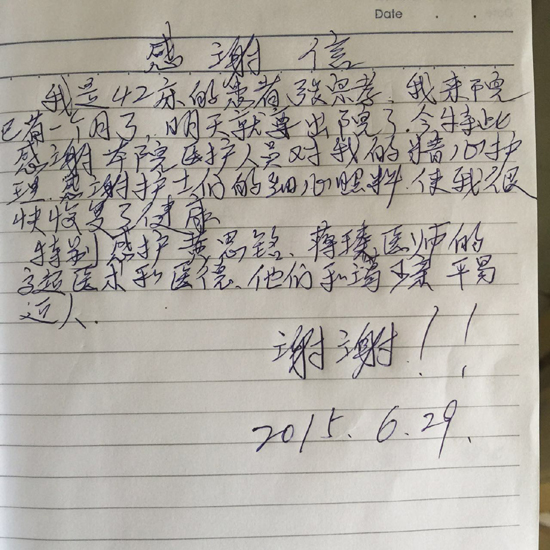 Date . .
感谢信
我是42床的患者张宗孝、我来下院
已有一个月了,明天就要出院了.今特此
感谢本院医护人员对我的精心护
理.感谢护士们的细心照料.使我很
快恢复了健康
特别感护黄思铭、蒋臻医师的
高超医术和医德.他们和蔼可亲平易
近人.
谢谢!!
2015.6.29.